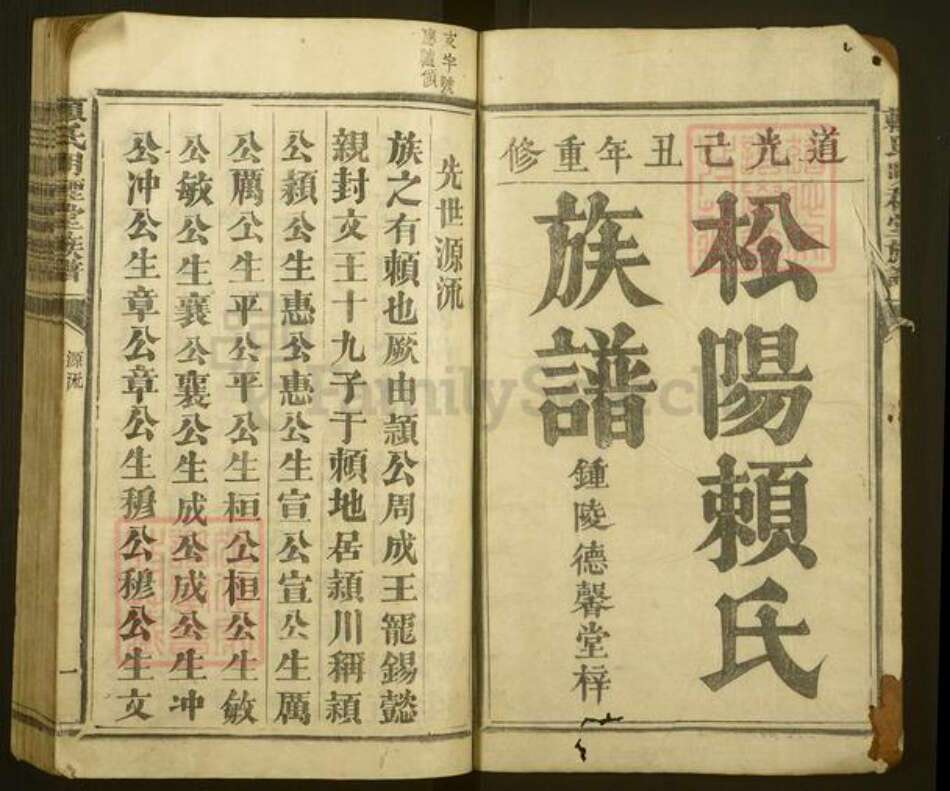 道光己丑年重修
松陽賴氏
族譜
鍾陵德馨堂梓
支字號
先世源流
族之有賴也厥由頴公周成王寵錫懿
親封文王十九子于賴地居頴川稱頴
公頴公生惠公惠公生宣公宣公生厲
公厲公生平公平公生桓公桓公生敏
公敏公生襄公襄公生成公成公生冲
公冲公生章公章公生穆公穆公生文
源流
一
FamilySearch